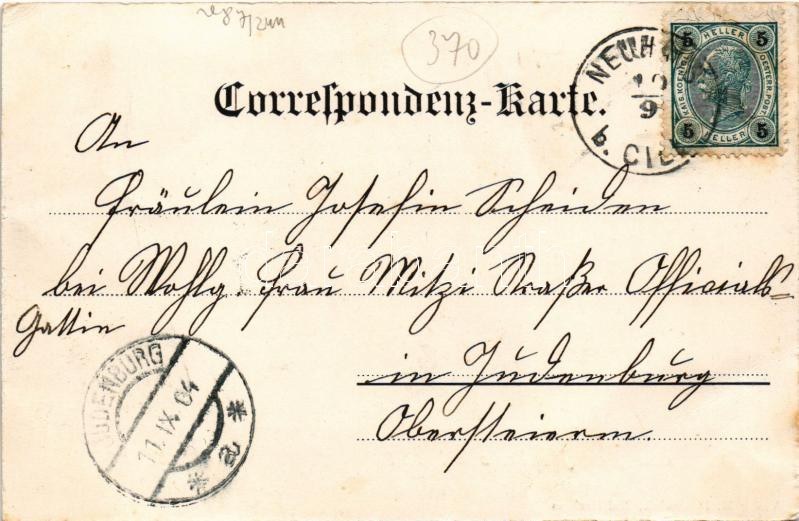 370
Correspondenz-Karte.
NEUHAUS
10
9
b. CILLI
5 HELLER 5
KAIS. KOENIGL. OESTERR. POST.
5 HELLER 5
An
Fräulein Josefin Scheiden
bei Wohlg. Frau Mitzi Straßer Officials-
Gattin
in Judenburg
Obersteierm.
JUDENBURG
11.IX.04
* a *